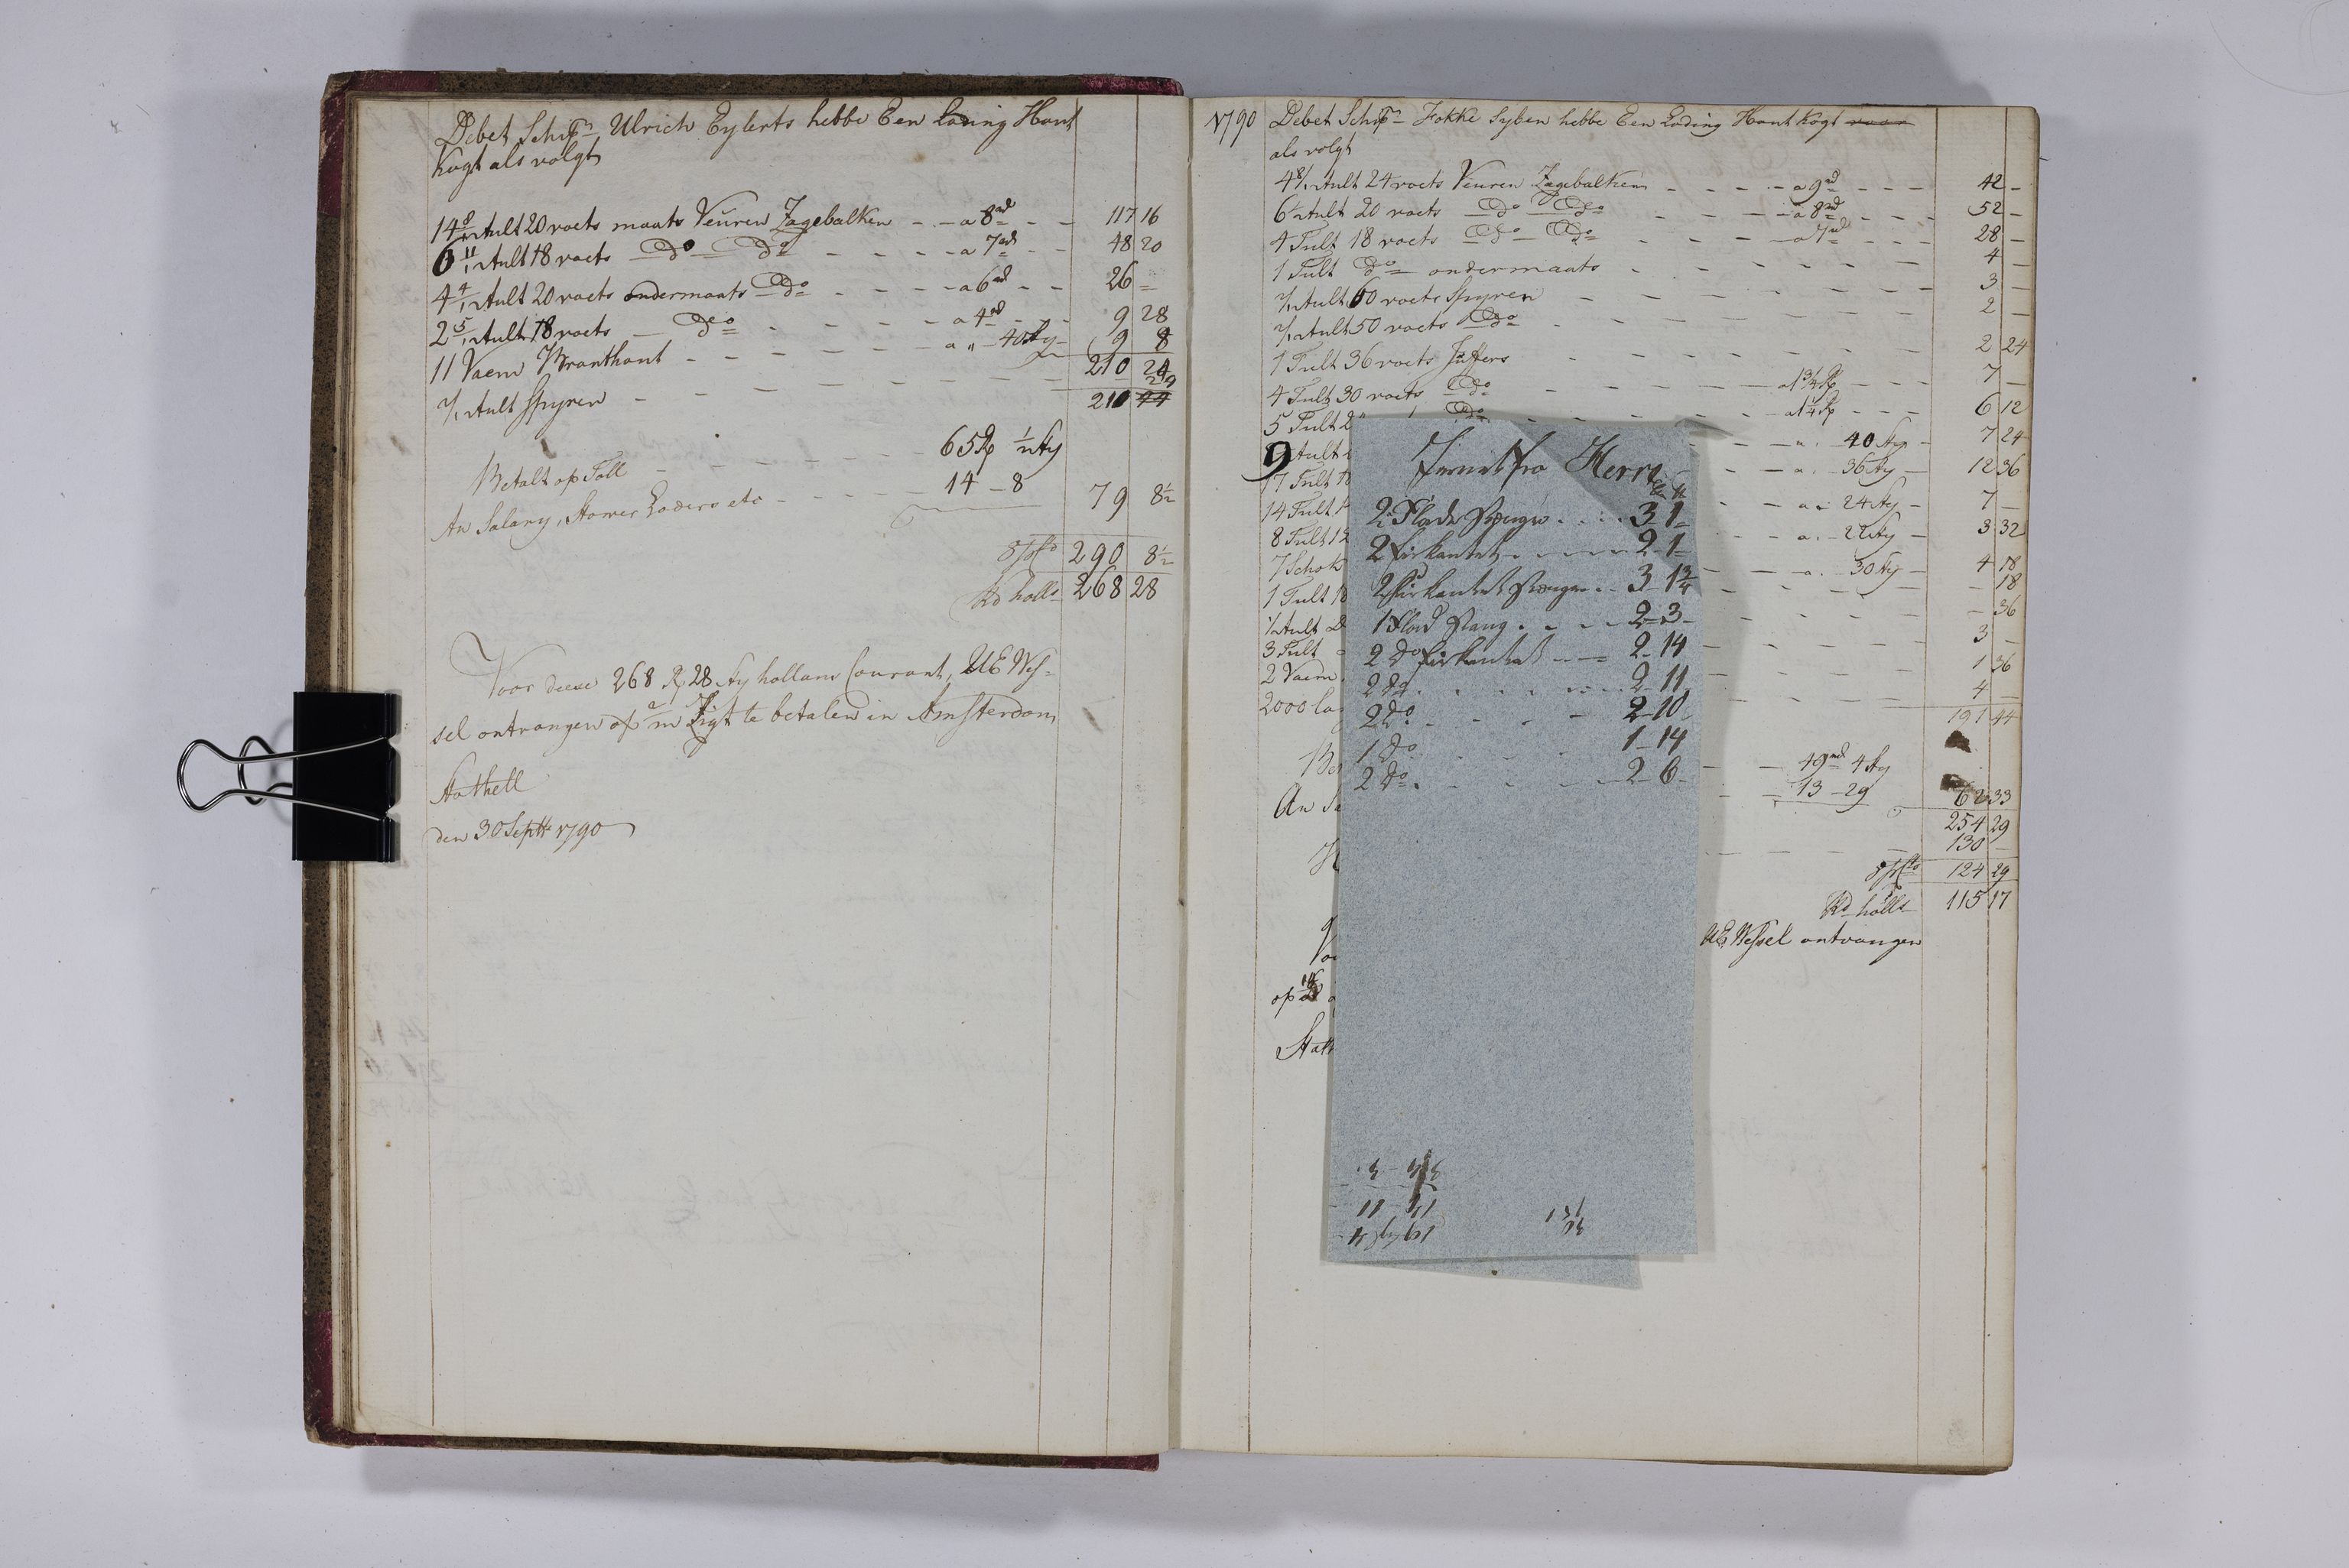 Debet Schipr Ulrich Eylerts hebbe Een Lading Hout
Kogt als volgt
14 8/12 Tult 20 voets maats Veuren Zagebalken - - a 8 rd - - 117 16
6 11/12 Tult 18 voets Do Do - - - - a 7 rd - - 48 20
4 4/12 Tult 20 voets ondermaats Do - - - - a 6 rd - - 26 =
2 5/12 Tult 18 voets - Do - - - - a 4 rd - - 9 28
11 Vaem Branthout - - - - - - a " - 40 sty - 9 8
210 24
½ Tult Spyren - - - - - - - 29
210 44
Betalt op Toll - - - - - - 65 R ½ sty
An Salary, Stower Loders etc - - - - - 14 - 8 79 8½
Spts 290 8½
Rd holls 268 28
Voor deese 268 R 28 sty hollans Courant, UE Wes-
sel ontvangen op a/m Zigt te betalen in Amsterdam
Stathell
den 30 Septb 1790
1790 Debet Schipr Fokke Syben hebbe Een Lading Hout Kogt voor
als volgt
4 8/12 Tult 24 voets Veuren Zagebalken - - - - a 9 rd - - - 42 -
6½ Tult 20 voets Do Do - - - a 8 rd - - - 52 -
4 Tult 18 voets Do - Do - - - a 7 rd - - - 28 -
1 Tult Do ondermaats - - - - - - 4 -
½ Tult 60 voets Spyren - - - - - - 3 -
½ Tult 50 voets Do - - - - - - 2 -
1 Tult 36 voets Juffers - - - - - - 2 24
4 Tult 30 voets Do - - - - a 1¾ R - - - 7 -
5 Tult 2 Do - - - - a 1¼ R - - - 6 12
9 Tult - - a . 40 sty - 7 24
17 Tult 18 - - a . 36 sty - 12 36
14 Tult 1 - - a . 24 sty - 7 -
8 Tult 12 - - a . 22 sty - 3 32
7 Schok - - a . 30 sty - 4 18
1 Tult 18 - 18
½ Tult D - 36
3 Tult 3 -
2 Vaem 1 36
2000 la 4 -
191 44
Be - - 49 rd 4 sty
An Sa - - 13 - 29 62 33
254 29
130 -
Spts 124 29
Rd holls 115 17
Vo UE Wessel ontvangen
op
Stath
fra Herre
2 Flade Stænger . . . . 3-1-
2 firkantet . - - - - 2-1-
2 firkantet Stænger . . 3-1¾
1 Flad Stang . . - - 2-3-
2 do firkantet - - - 2-14
2 do . . . - - - 2-11
2 do . - - - - 2-10
1 do . . . 1-14
2 do . . . . - 2-6-